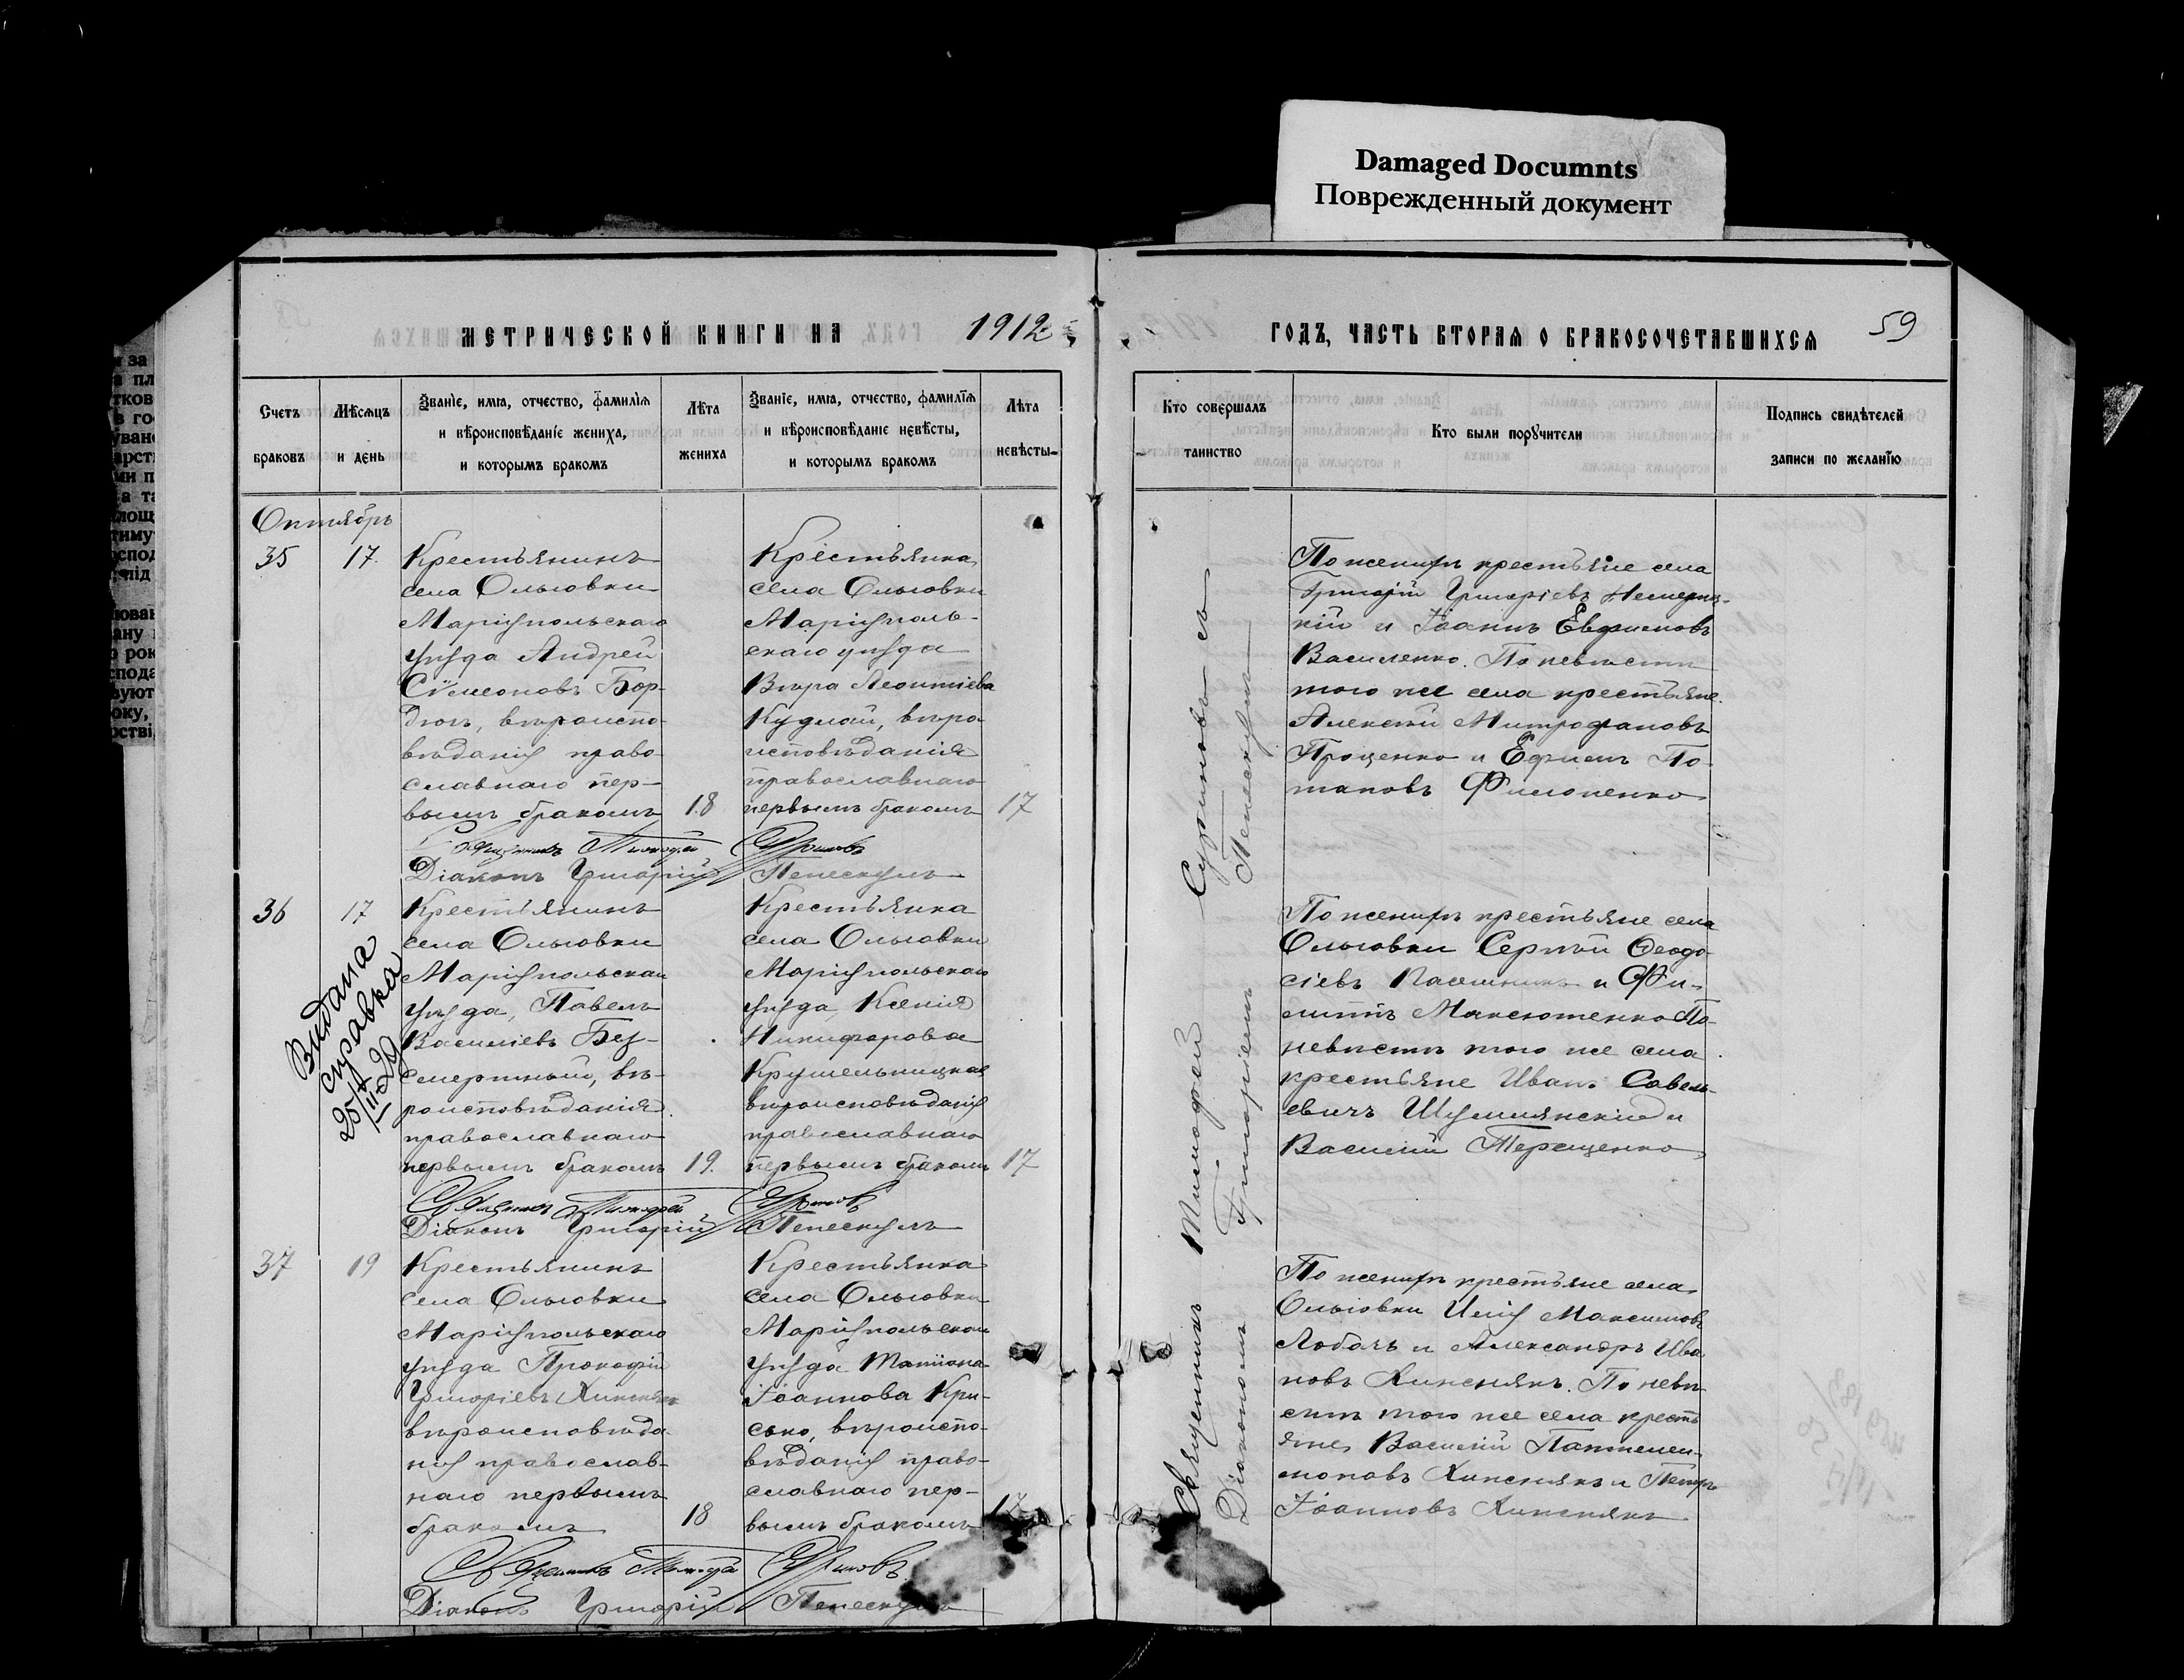 Damaged Documnts
Поврежденный документ
МЕТРИЧЕСКОЙ КНИГИ НА 1912
ГОДЪ, ЧАСТЬ ВТОРАЯ О БРАКОСОЧЕТАВШИХСЯ 59
Счетъ
браковъ
Мѣсяцъ
и день
Званіе, имя, отчество, фамилія
и вѣроисповѣданіе жениха,
и которымъ бракомъ
Лѣта
жениха
Званіе, имя, отчество, фамилія
и вѣроисповѣданіе невѣсты,
и которымъ бракомъ
Лѣта
невѣсты
Кто совершалъ
таинство
Кто были поручители
Подпись свидѣтелей
записи по желанію
Октябрь
35
17
Крестьянинъ
села Ольговки
Маріупольскаго
уѣзда Андрей
Сѵмеоновъ Бор-
дюгъ, вѣроиспо-
вѣданія право-
славнаго пер-
вымъ бракомъ
18
Крестьянка
села Ольговки
Маріуполь-
скаго уѣзда
Вѣра Леонтіева
Кудлай, вѣро
исповѣданія
православнаго
первымъ бракомъ
17
Священникъ Тимофей Суриновъ
Діаконъ Григорій Пепескулъ
По женихѣ крестьяне села
Григорій Григоріевъ
кій и Іоаннъ Евфимовъ
Василенко. По невѣстѣ
того же села крестьяне
Алексѣй Митрофановъ
Проценко и Ефимъ По-
таповъ Филоненко
36
17
Видана
справка
25/II-29
Крестьянинъ
села Ольговки
Маріупольскаго
уѣзда, Павелъ
Василіевъ Без-
смертный, вѣ-
роисповѣданія
православнаго
первымъ бракомъ
19.
Крестьянка
села Ольговки
Маріупольскаго
уѣзда, Ксенія
Никифорова
Крушельницкая
вѣроисповѣданія
православнаго
первымъ бракомъ
17
Священникъ Тимофей Суриновъ
Діаконъ Григорій Пепескулъ
По женихѣ крестьяне села
Ольговки Сергѣй Ѳеодо-
сіевъ Пасечникъ и Фи-
липпъ Максютенко По
невѣстѣ того же села
крестьяне Иванъ Савель-
евичъ Шумлянскій и
Василій Терещенко
37
19
Крестьянинъ
села Ольговки
Маріупольскаго
уѣзда Прокофій
Григоріевъ Хижнякъ
вѣроисповѣда
нія православ-
наго первымъ
бракомъ
18
Крестьянка
села Ольговки
Маріупольскаго
уѣзда Татіана
Іоаннова Кри-
сько, вѣроиспо-
вѣданія право-
славнаго пер-
вымъ бракомъ
17
Священникъ Тимофей Суриновъ
Діаконъ Григорій Пепескулъ
По женихѣ крестьяне села
Ольговки Илія Максимовъ
Лобачъ и Александръ Ива
новъ Хижнякъ. По невѣ
стѣ того же села кресть
яне Василій Пантелеи-
моновъ Хижнякъ и Петръ
Іоанновъ Хижнякъ
Священникъ Тимофей Суриновъ съ
Діакономъ Григоріемъ Пепескулъ